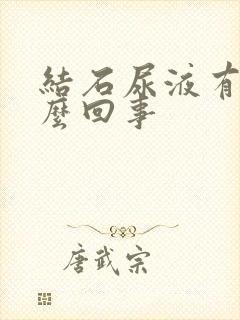 結石尿液有
麼回事
唐武宗